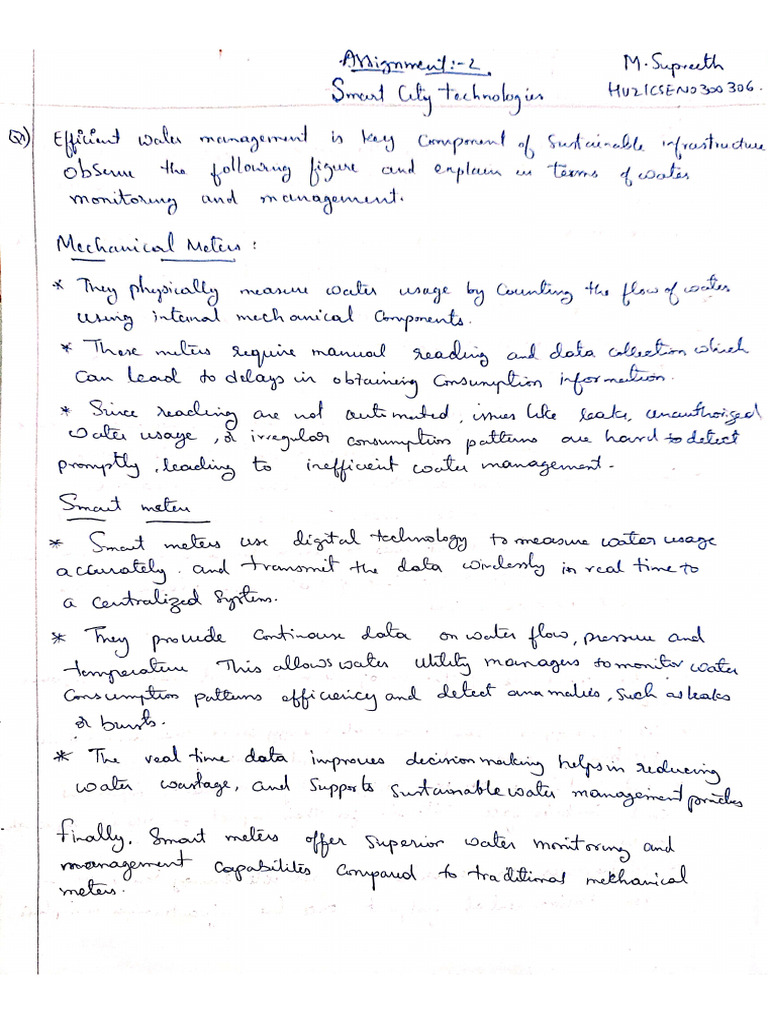 Assignment:-2
M. Supreeth
Smart City Technologies
HU21CSEN0300306.
Q1) Efficient water management is key component of sustainable infrastructure
observe the following figure and explain in terms of water
monitoring and management.
Mechanical Meters :
* They physically measure water usage by counting the flow of water
using internal mechanical components.
* These meters require manual reading and data collection which
can lead to delays in obtaining consumption information.
* Since reading are not automated, issues like leaks, unauthorized
water usage, or irregular consumption patterns are hard to detect
promptly, leading to inefficient water management.
Smart meter
* Smart meters use digital technology to measure water usage
accurately. and transmit the data wirelessly in real time to
a centralized system.
* They provide continouse data on water flow, pressure and
temperature. This allows water utility managers to monitor water
consumption patterns efficiency and detect anamalies, such as leaks
or bursts.
* The real time data improves decision making helps in reducing
water wastage, and supports sustainable water management practices
finally, Smart meters offer superior water monitoring and
management capabilites compared to traditional mechanical
meters.